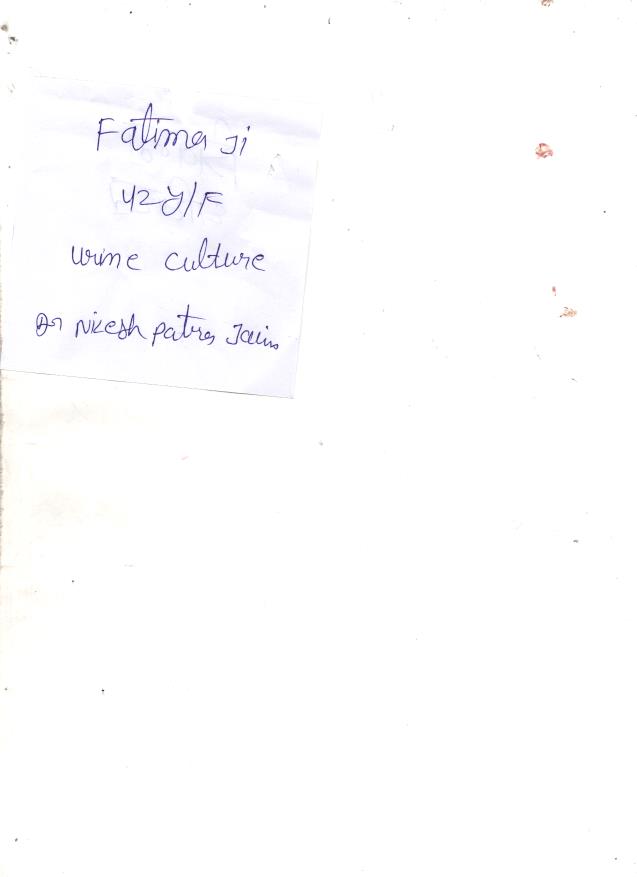 Fatima Ji
42 Y/F
Urine culture
Dr Nikesh patra Jain